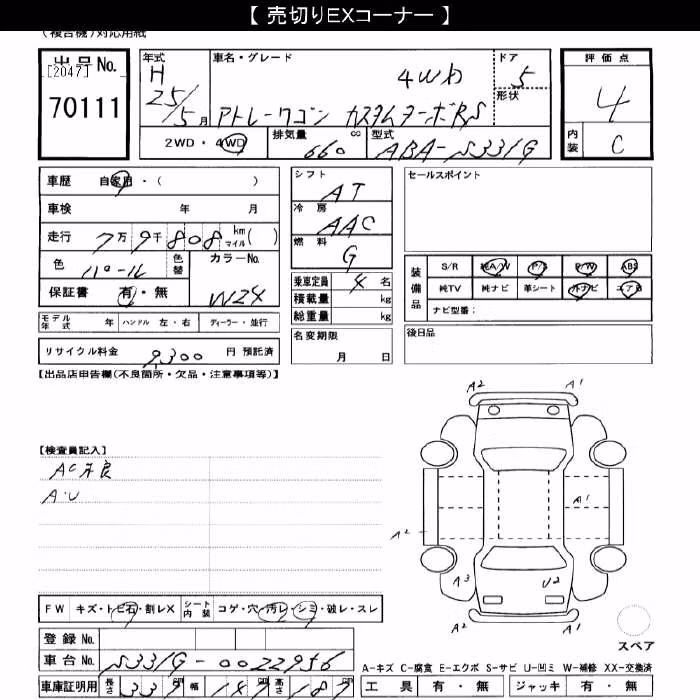 【 売切りEXコーナー 】
(複合機)対応用紙
出品No.
[2047]
70111
年式 車名・グレード ドア
H 4WD 5
25/5月 アトレーワゴン カスタムターボRS
形状
2WD・4WD 排気量 cc 型式
660 ABA-S331G
評価点
4
内装 C
車歴 自家用・( )
車検 年 月
走行 7万9千808 km マイル( )
色 パール 色替 カラーNo.
保証書 有・無 W24
モデル年式 年 ハンドル 左・右 ディーラー・並行
リサイクル料金 9,300 円 預託済
シフト
AT
冷房
AAC
燃料
G
乗車定員 4 名
積載量 kg
総重量 kg
名変期限
月 日
セールスポイント
装備品 S/R 純A/W P/S P/W ABS
純TV 純ナビ 革シート 外ナビ エアB
ナビ型番:
後日品
【出品店申告欄(不良箇所・欠品・注意事項等)】
【検査員記入】
AC不良
A・U
A2 A1
A1
A2
A3 U2
A2 A1
スペア
FW キズ・トビ石・割レX シート内装 コゲ・穴・汚レ・シミ・破レ・スレ
登録No.
車台No. S331G-0022956
車庫証明用 長さ 339 幅 147 高さ 187
A-キズ C-腐食 E-エクボ S-サビ U-凹ミ W-補修 XX-交換済
工具 有・無 ジャッキ 有・無